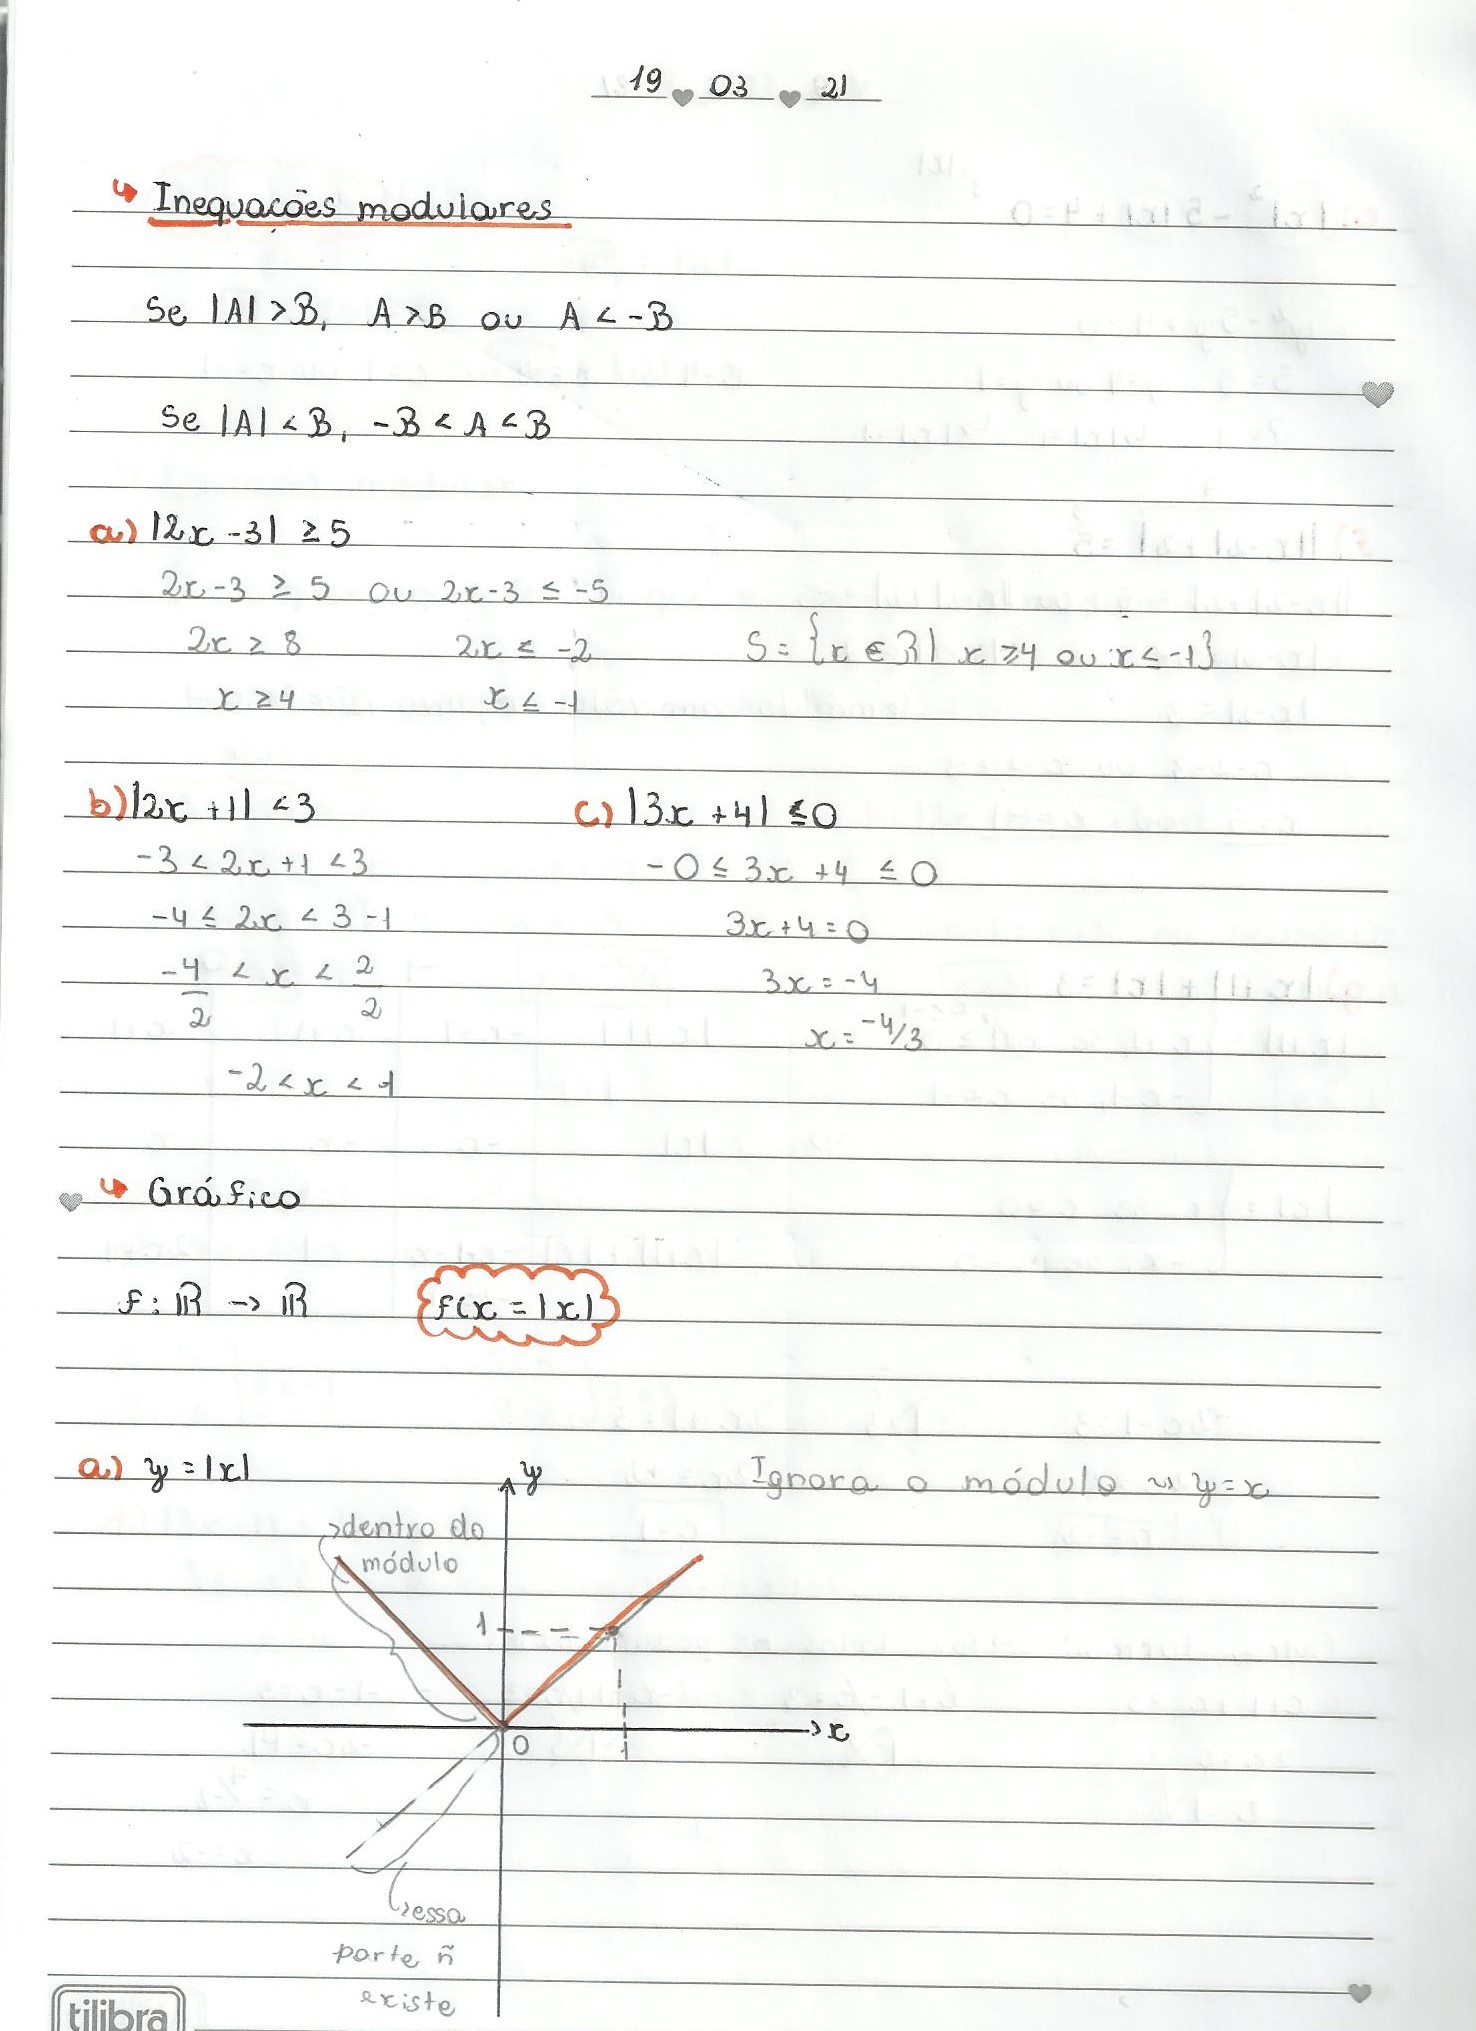 19 03 21
↳ Inequações modulares
Se |A| > B, A > B ou A < -B
Se |A| < B, -B < A < B
a) |2x - 3| ≥ 5
2x - 3 ≥ 5 ou 2x - 3 ≤ -5
2x ≥ 8 2x ≤ -2 S = {x ∈ R | x ≥ 4 ou x ≤ -1}
x ≥ 4 x ≤ -1
b) |2x + 1| < 3 c) |3x + 4| ≤ 0
-3 < 2x + 1 < 3 -0 ≤ 3x + 4 ≤ 0
-4 ≤ 2x < 3 - 1 3x + 4 = 0
-4/2 < x < 2/2 3x = -4
x = -4/3
-2 < x < 1
↳ Gráfico
f: ℝ -> ℝ f(x = |x|
a) y = |x| y Ignora o módulo ~> y = x
dentro do
módulo
1
x
0 1
essa
parte ñ
existe
tilibra